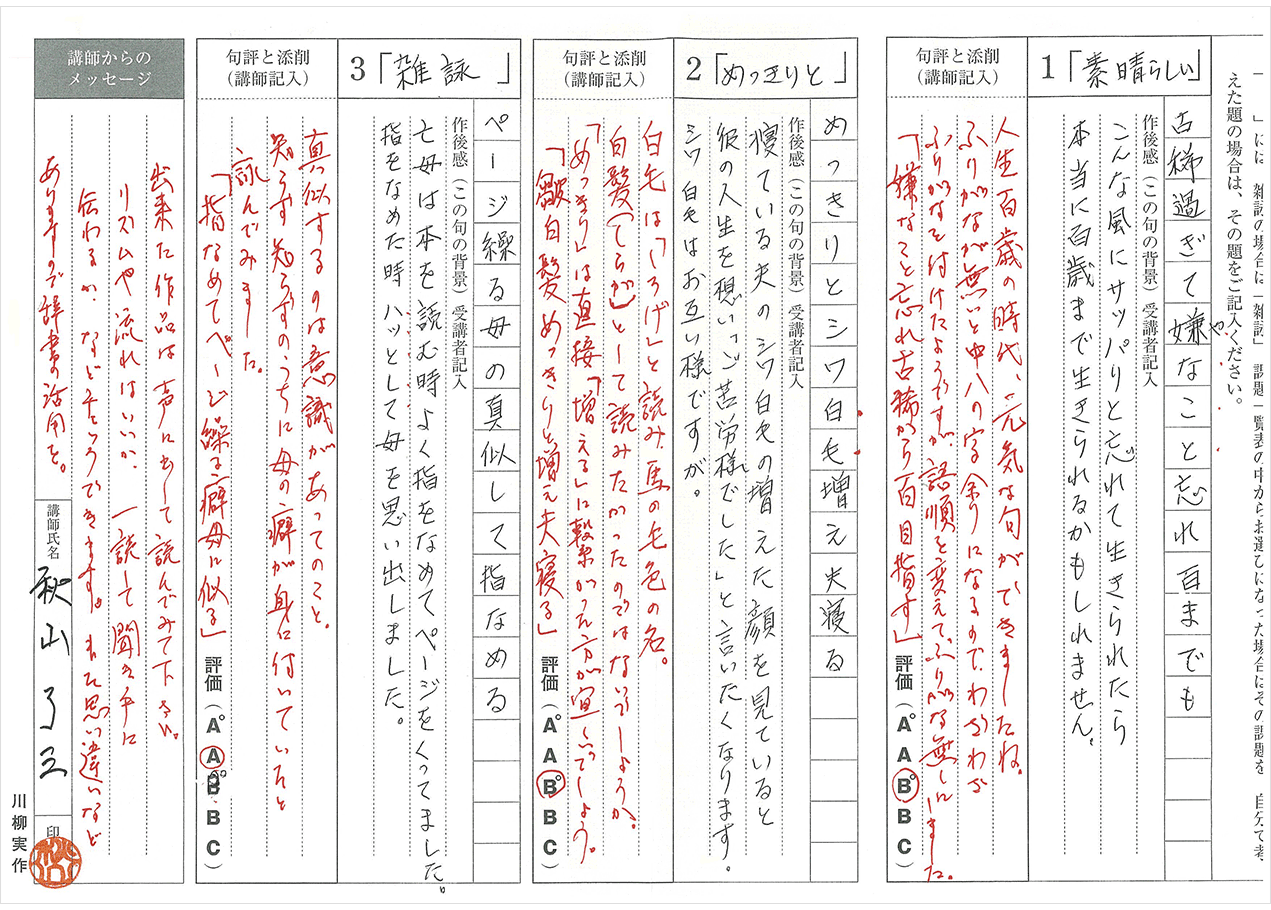 えた題の場合は、その題をご記入ください。
1「素晴らしい」
古稀過ぎて嫌なこと忘れ百までも
や
作後感(この句の背景)受講者記入
こんな風にサッパリと忘れて生きられたら
本当に百歳まで生きられるかもしれません。
句評と添削
(講師記入)
人生百歳の時代、元気な句ができましたね。
ふりがなが無いと中八の字余りになるので、わざわざ
ふりがなを付けたようですが、語順を変えて、ふりがな無しにしました。
「嫌なこと忘れ古稀から百目指す」
評価(A° A B° B C)
2「めっきりと」
めっきりとシワ白毛増え夫寝る
作後感(この句の背景)受講者記入
寝ている夫のシワ白毛の増えた顔を見ていると
彼の人生を想い「ご苦労様でした」と言いたくなります。
シワ白毛はお互い様ですが。
句評と添削
(講師記入)
白毛は「しろげ」と読み馬の毛色の名。
白髪(しらが)として読みたかったのではないでしょうか。
「めっきり」は直接「増える」に繋がった方が宜しいでしょう。
「皺白髪めっきりと増え夫寝る」
評価(A° A B° B C)
3「雑詠」
ページ繰る母の真似して指なめる
作後感(この句の背景)受講者記入
亡母は本を読む時よく指をなめてページをくってました。
指をなめた時ハッとして母を思い出しました。
句評と添削
(講師記入)
真似するのは意識があってのこと。
知らず知らずのうちに母の癖が身に付いていたと
詠んでみました。
「指なめてページ繰る癖母に似る」
評価(A° A B° B C)
講師からの
メッセージ
出来た作品は声に出して読んでみて下さい。
リズムや流れはいいか、一読して聞き手に
伝わるか、などチェックできます。また思い違いなど
ありますので辞書の活用を。
講師氏名
秋山了三
印
川柳実作